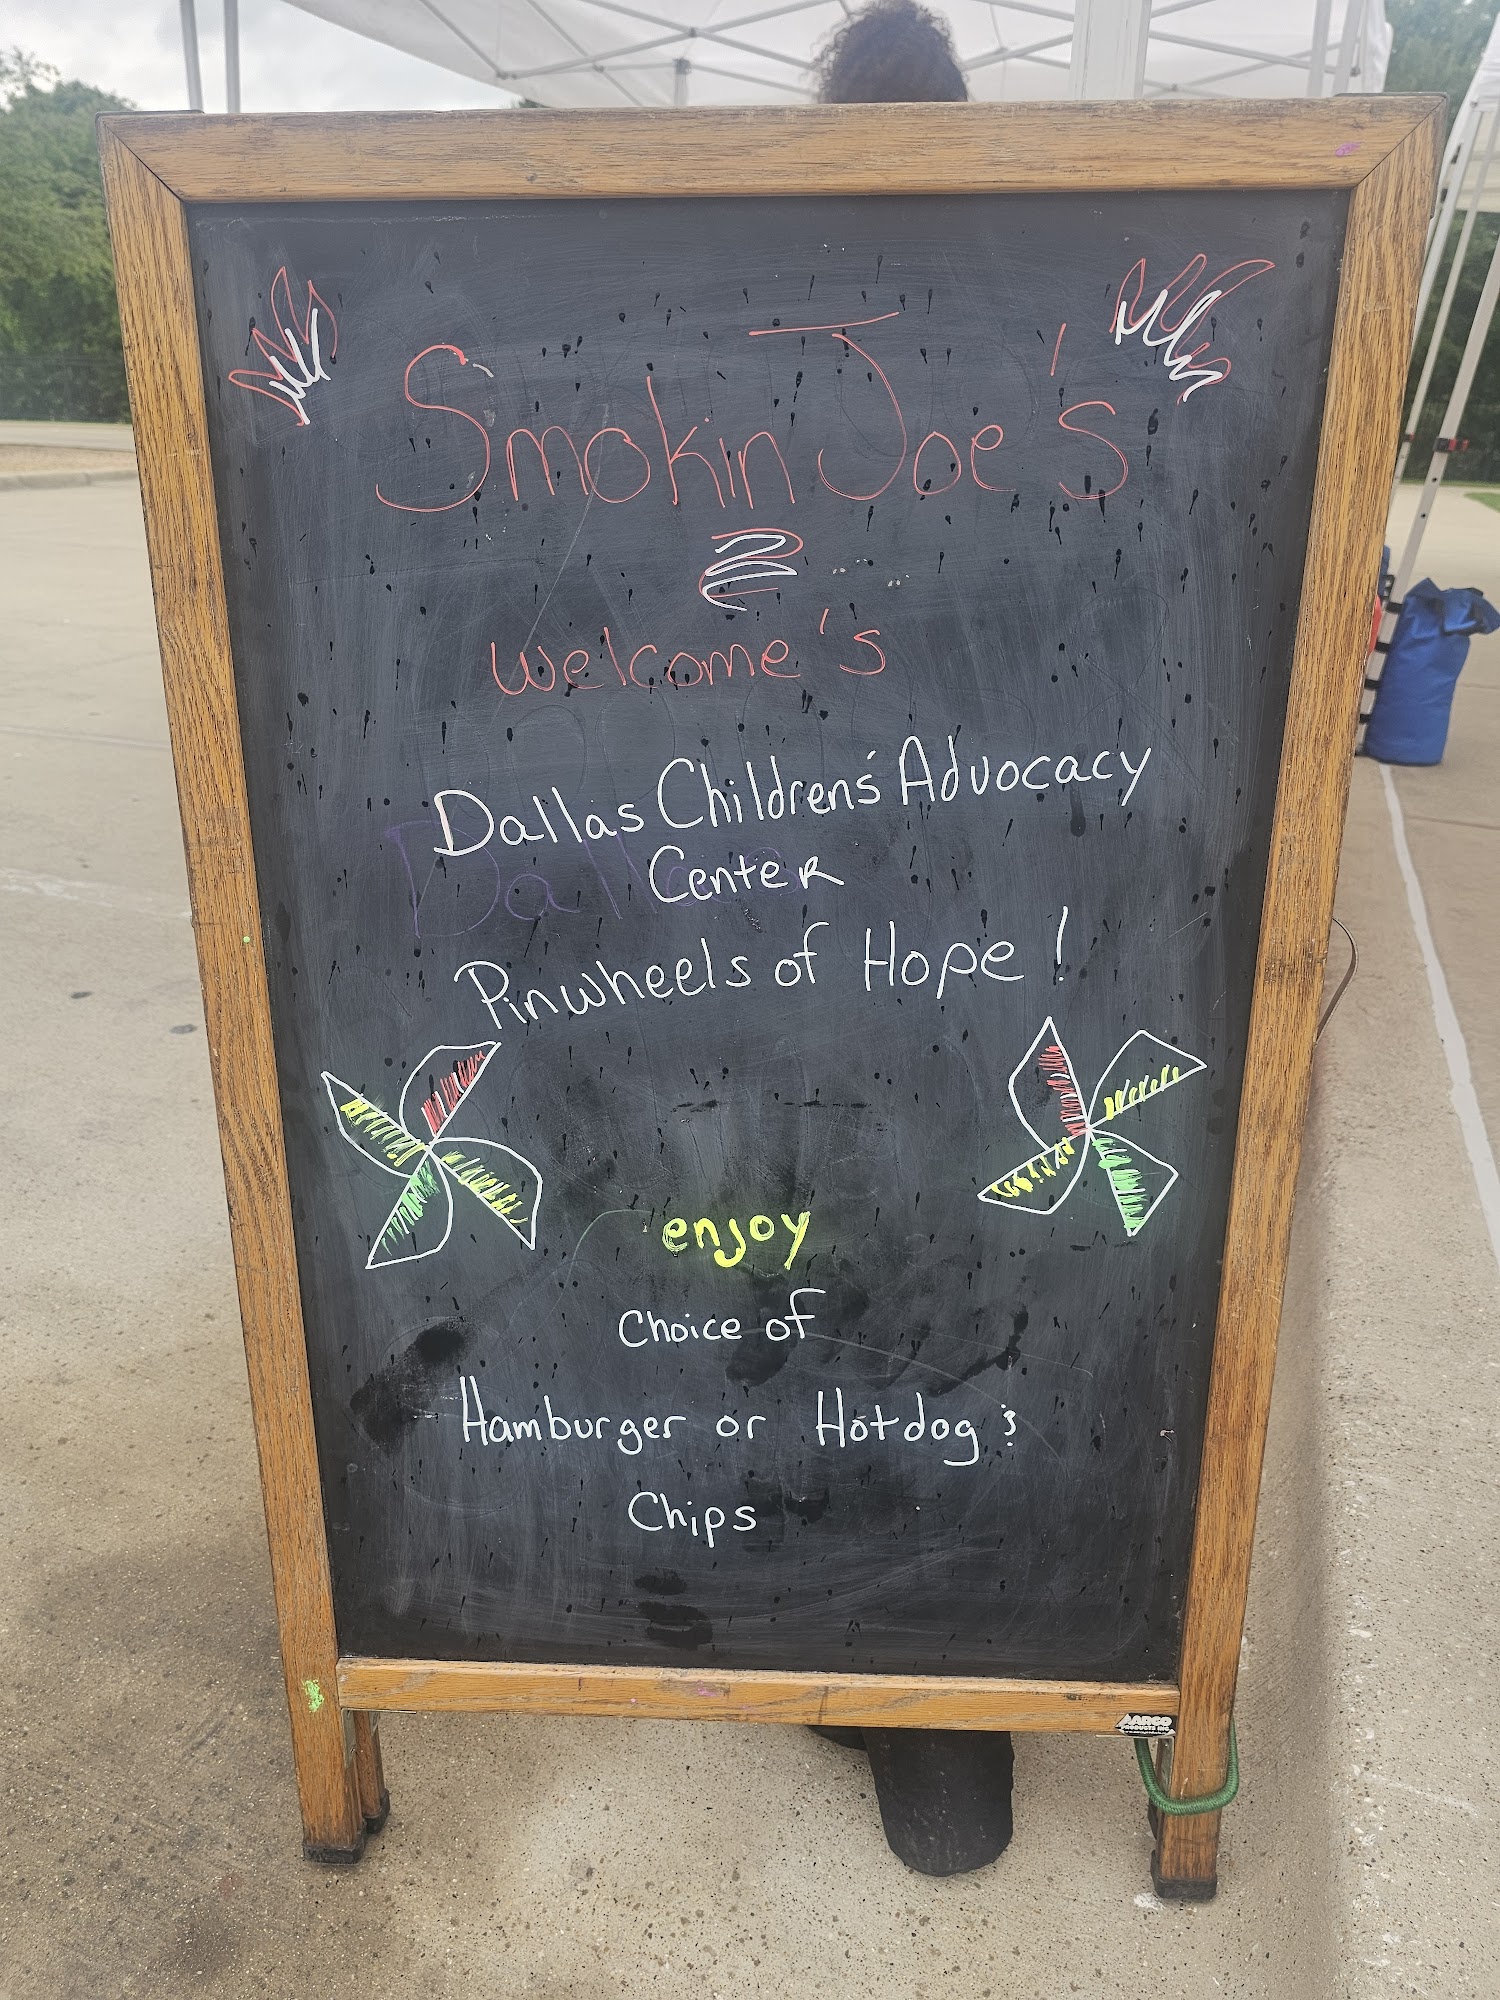 Smokin Joe's
Welcome's
Dallas Childrens' Advocacy
Center
Pinwheels of Hope!
enjoy
Choice of
Hamburger or Hotdog &
Chips
AARCO
PRODUCTS INC